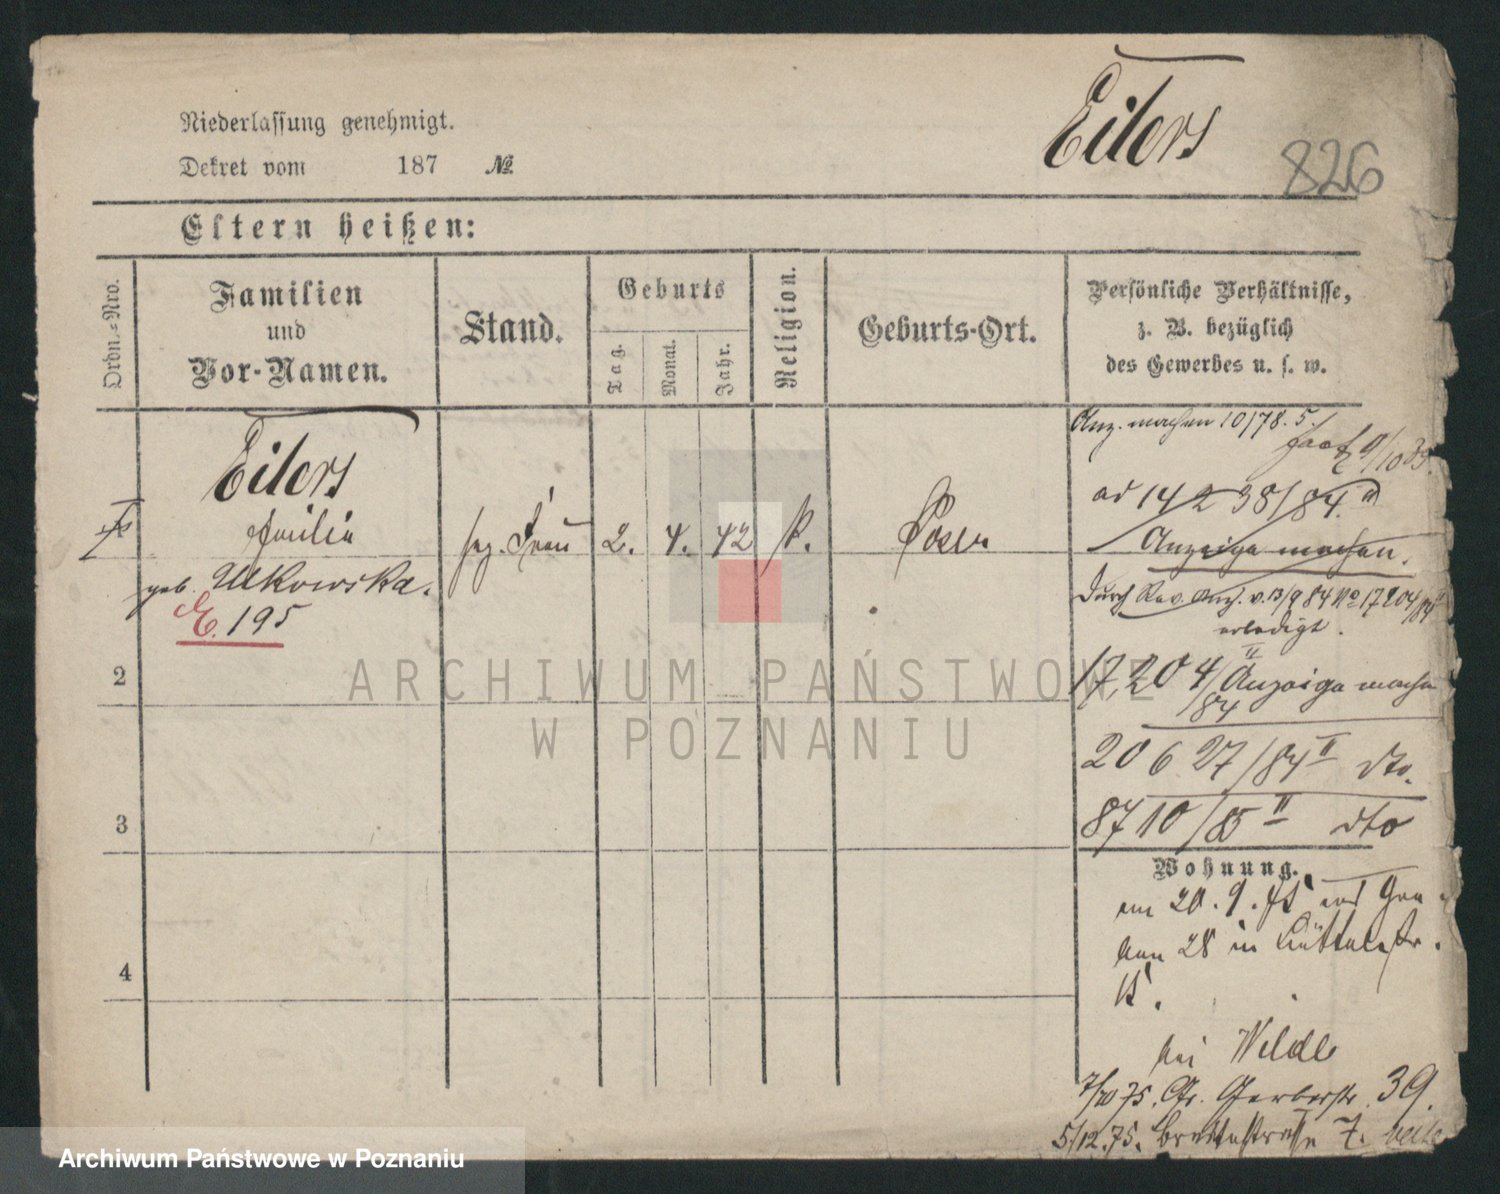 Eilers
826
Niederlassung genehmigt.
Dekret vom 187 №
Eltern heißen:
Ordn.-Nro.
Familien
und
Vor-Namen.
Stand.
Geburts
Tag.
Monat.
Jahr.
Religion.
Geburts-Ort.
Persönliche Verhältnisse,
z. B. bezüglich
des Gewerbes u. s. w.
Eilers
Emilie
geb.
E. 195
2. 4. 42 k. Posen
Anz. machen 10/78. 5.
ad 14238/84. II
Anzeige machen.
Durch Rev. Anz. v. 13/9 84 No 17204/84 II
erledigt.
17,204/84 II Anzeige machen
20627/84 II dto.
8710/85 II dto
2
3
4
Wohnung.
am 20. 9. 75 aus
28 in
15.
bei Wildt
7/10 75. Gr. Gerberstr. 39.
5/12. 75. Breitestraße 7.
Archiwum Państwowe
w Poznaniu
Archiwum Państwowe w Poznaniu